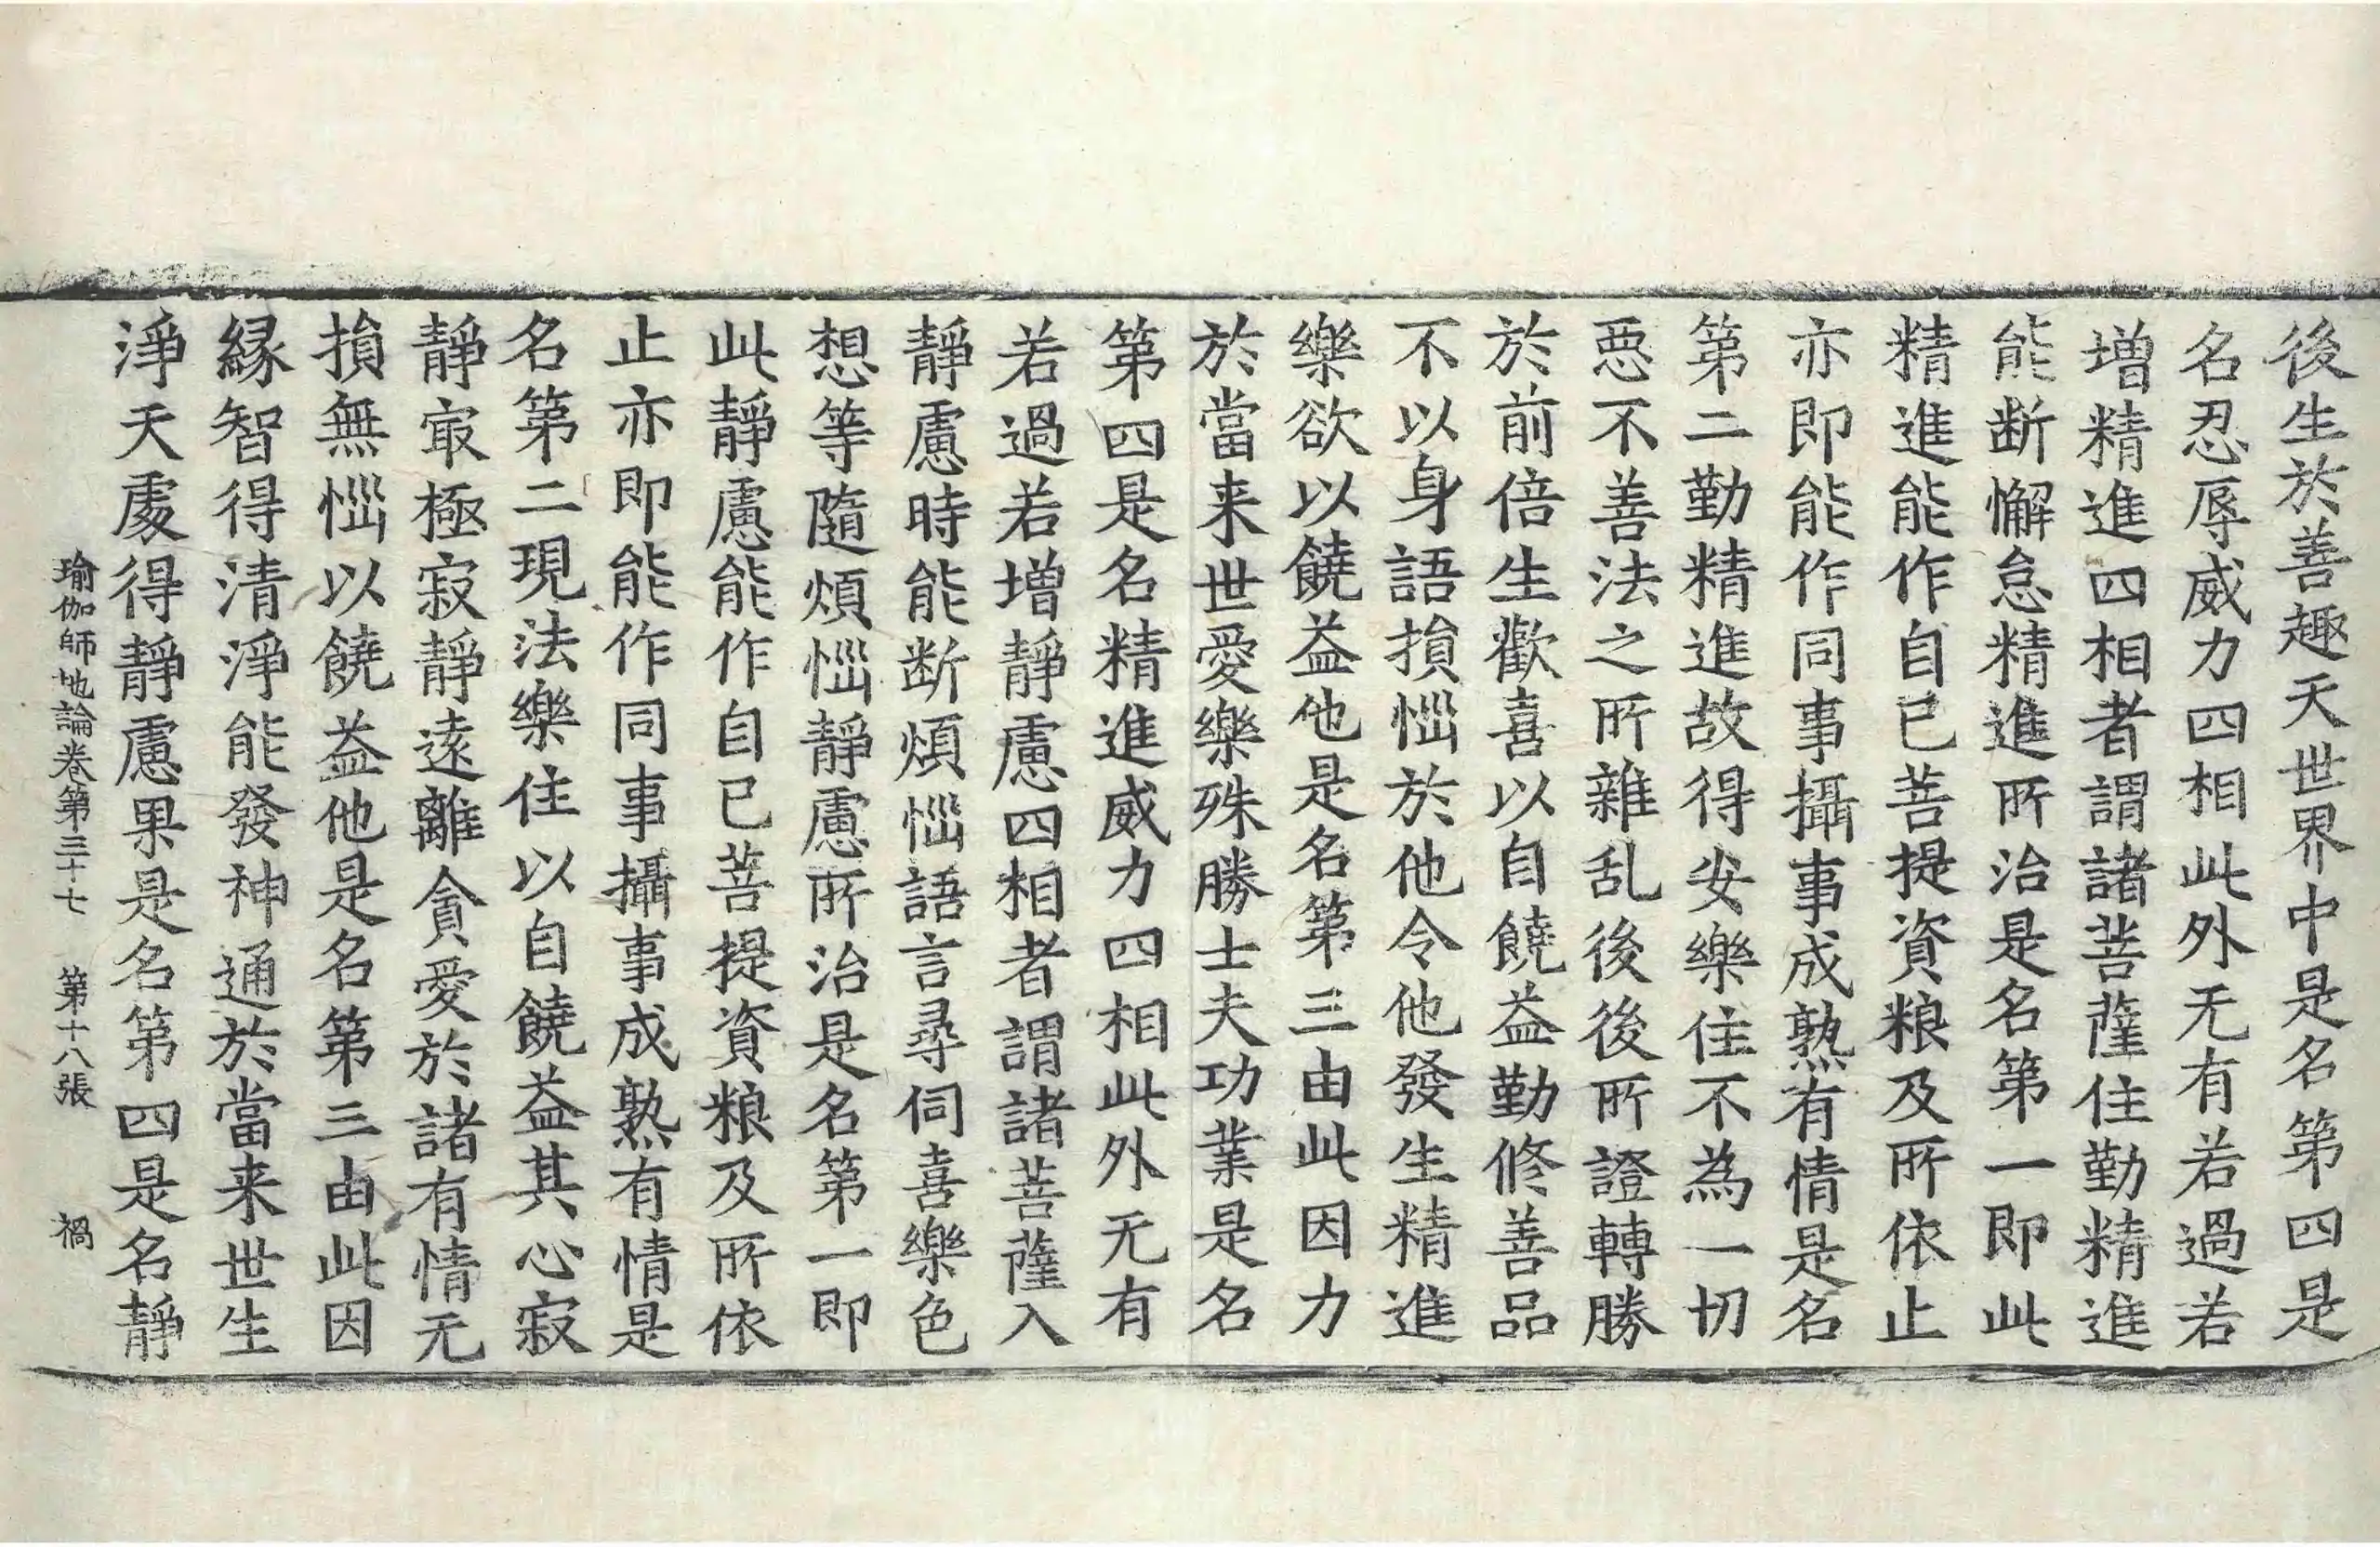 後生於善趣天世界中是名第四是
名忍辱威力四相此外无有若過若
增精進四相者謂諸菩薩住勤精進
能断懈怠精進所治是名第一即此
精進能作自已菩提資粮及所依止
亦即能作同事攝事成熟有情是名
第二勤精進故得安樂住不為一切
惡不善法之所雜乱後後所證轉勝
於前倍生歡喜以自饒益勤修善品
不以身語損惱於他令他發生精進
樂欲以饒益他是名第三由此因力
於當来世愛樂殊勝士夫功業是名
第四是名精進威力四相此外无有
若過若增靜慮四相者謂諸菩薩入
靜慮時能断煩惱語言尋伺喜樂色
想等隨煩惱靜慮所治是名第一即
此靜慮能作自已菩提資粮及所依
止亦即能作同事攝事成熟有情是
名第二現法樂住以自饒益其心寂
靜㝡極寂靜遠離貪愛於諸有情无
損無惱以饒益他是名第三由此因
縁智得清淨能發神通於當来世生
淨天處得靜慮果是名第四是名靜
瑜伽師地論卷第三十七 第十八張 禍